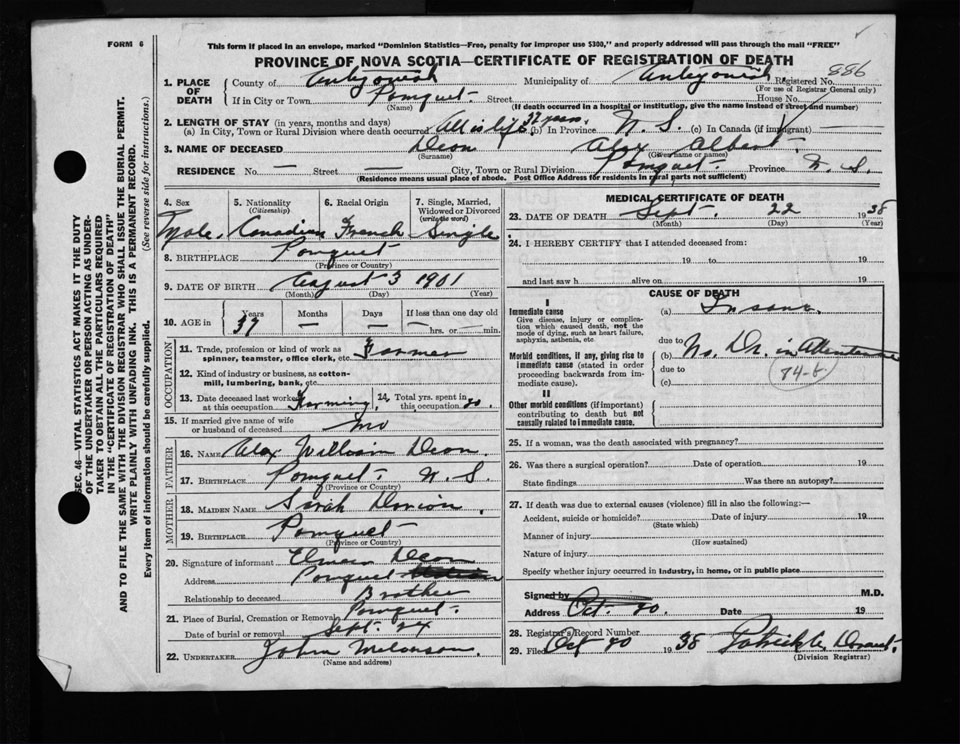 FORM 6
This form if placed in an envelope, marked "Dominion Statistics—Free, penalty for improper use $300," and properly addressed will pass through the mail "FREE"
PROVINCE OF NOVA SCOTIA—CERTIFICATE OF REGISTRATION OF DEATH
886
1. PLACE OF DEATH County of Antigonish Municipality of Antigonish Registered No.
(For use of Registrar General only)
If in City or Town Pomquet. Street House No.
(Name) (If death occurred in a hospital or institution, give name instead of street and number)
2. LENGTH OF STAY (in years, months and days)
(a) In City, Town or Rural Division where death occurred All is life 37 years. (b) In Province N. S. (c) In Canada (if immigrant) —
3. NAME OF DECEASED Deon Alex Albert.
(Surname) (Given name or names)
RESIDENCE No. — Street — City, Town or Rural Division Pomquet. Province N. S.
(Residence means usual place of abode. Post Office Address for residents in rural parts not sufficient)
4. Sex 5. Nationality (Citizenship) 6. Racial Origin 7. Single, Married, Widowed or Divorced (write the word)
Male. Canadian French Single.
8. BIRTHPLACE Pomquet
(Province or Country)
9. DATE OF BIRTH August 3 1901
(Month) (Day) (Year)
10. AGE in Years Months Days If less than one day old
37 — — — hrs. or — min.
OCCUPATION
11. Trade, profession or kind of work as spinner, teamster, office clerk, etc. Farmer
12. Kind of industry or business, as cotton-mill, lumbering, bank, etc.
13. Date deceased last worked at this occupation Farming 14. Total yrs. spent in this occupation 20.
15. If married give name of wife or husband of deceased No
FATHER
16. NAME Alex William Deon.
17. BIRTHPLACE Pomquet. N. S.
(Province or Country)
MOTHER
18. MAIDEN NAME Sarah
19. BIRTHPLACE Pomquet
(Province or Country)
20. Signature of informant Deon
Address Pomquet
Relationship to deceased Brother
21. Place of Burial, Cremation or Removal Pomquet.
Date of burial or removal Sept. 24
22. UNDERTAKER John
(Name and address)
MEDICAL CERTIFICATE OF DEATH
23. DATE OF DEATH Sept. 22 1938
(Month) (Day) (Year)
24. I HEREBY CERTIFY that I attended deceased from:
19 to 19
and last saw h alive on 19
CAUSE OF DEATH
I
Immediate cause (a) Insane.
Give disease, injury or complication which caused death, not the mode of dying, such as heart failure, asphyxia, asthenia, etc.
due to
Morbid conditions, if any, giving rise to immediate cause (stated in order proceeding backwards from immediate cause). (b) No. Dr. in Attendance
due to 84-b.
(c)
II
Other morbid conditions (if important) contributing to death but not causally related to immediate cause.
25. If a woman, was the death associated with pregnancy?
26. Was there a surgical operation? Date of operation 19
State findings Was there an autopsy?
27. If death was due to external causes (violence) fill in also the following:
Accident, suicide or homicide? Date of injury 19
(State which)
Manner of injury
(How sustained)
Nature of injury
Specify whether injury occurred in industry, in home, or in public place
Signed by M.D.
Address Oct. 20. Date 19
28. Registrar's Record Number
29. Filed Oct 20 1938
(Division Registrar)
SEC. 46—VITAL STATISTICS ACT MAKES IT THE DUTY
OF THE UNDERTAKER OR PERSON ACTING AS UNDER-
TAKER TO OBTAIN ALL THE PARTICULARS REQUIRED
IN THE "CERTIFICATE OF REGISTRATION OF DEATH"
AND TO FILE THE SAME WITH THE DIVISION REGISTRAR WHO SHALL ISSUE THE BURIAL PERMIT.
WRITE PLAINLY WITH UNFADING INK. THIS IS A PERMANENT RECORD.
Every item of information should be carefully supplied. (See reverse side for instructions.)